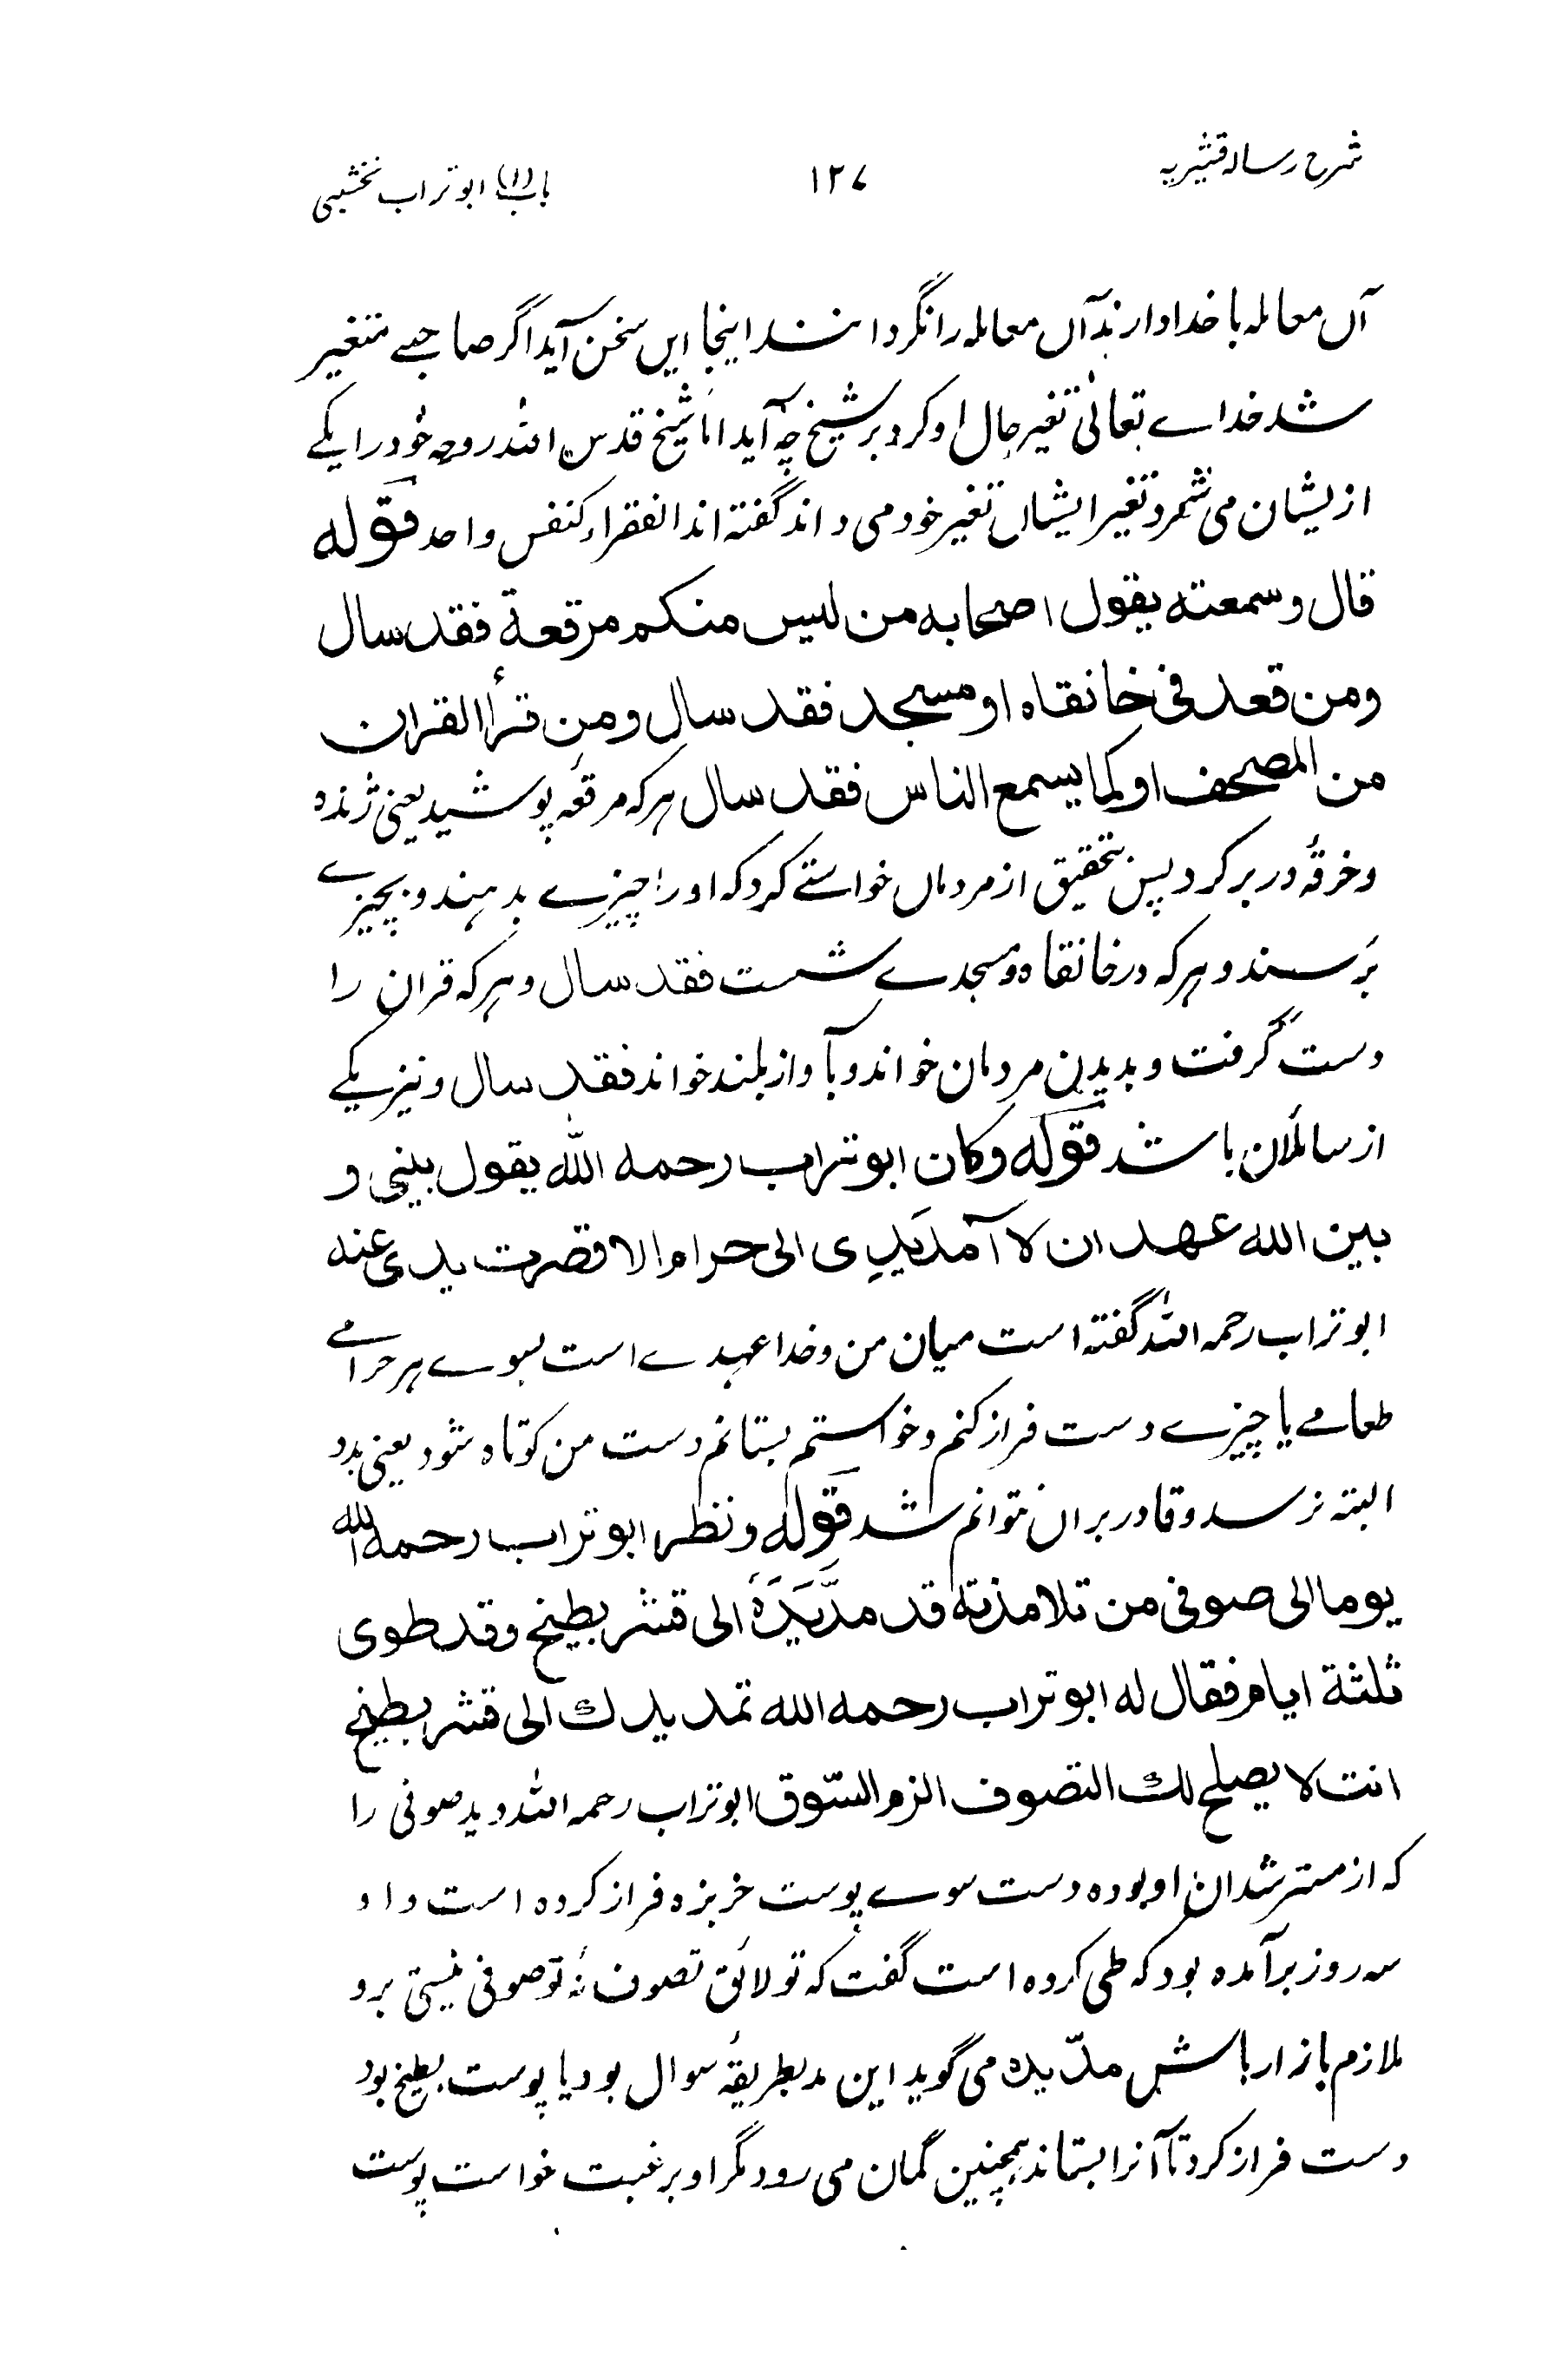 شرح رسالہ قشیریہ
۱۲۷
باب (۱) ابوتراب نخشبی
آں معاملہ با خدا دارند آں معاملہ را نگردانند اینجا ایں سخن آید اگر صاحبے متغیر
شد خداے تعالیٰ تغیر حال او کرد بر شیخ چہ آید اما شیخ قدس اللہ روحہ خود را یکے
از یشان می شمرد تغیر ایشاں تغیر خود می داند گفتہ اند الفقراء کنفس واحد قوله
قال وسمعته يقول اصحابه من لیس منکم مرقعة فقد سال
ومن قعد فی خانقاه او مسجد فقد سال ومن قرأ القران
من المصحف او کما یسمع الناس فقد سال ہر کہ مرقعہ پوشید یعنی ژندہ
و خرقۂ در بر کرد پس بتحقیق از مردماں خواستے کرد کہ او را چیزے بدہند و بچیزے
بر سند و ہر کہ در خانقاہ و مسجدے شست فقد سال و ہر کہ قران را
دست گرفت و بدیدن مردمان خواند و بآواز بلند خواند فقد سال و نیز یکے
از سائلان باشد قوله وکان ابوتراب رحمه الله یقول بینی و
بین الله عهد ان لا آمد یدی الی حرام الا قصرت یدی عنه
ابوتراب رحمہ اللہ گفتہ است میان من و خدا عہدے است بسوے ہر حرامے
طعامے یا چیزے دست فراز کنم و خواستم بستانم دست من کوتاہ شود یعنی بدو
البتہ نرسد و قادر بران نتوانم شد قوله ونظر ابوتراب رحمه الله
یوما الی صوفی من تلامذته قد مدّ یَدَهُ الی قشر بطیخ وقد طوی
ثلثة ایام فقال له ابوتراب رحمه الله تمد یدك الی قشر بطیخ
انت لا یصلح لك التصوف الزم السّوق ابوتراب رحمہ اللہ دید صوفی را
کہ از مسترشدان او بودہ دست سوے پوست خربزہ فراز کردہ است و او
سہ روز برآمدہ بود کہ طی کردہ است گفت کہ تو لائق تصوف نۂ تو صوفی نیستی برو
ملازم بازار باش مدّ یدہ می گوید این مد بطریقۂ سوال بود یا پوست بطیخ بود
دست فراز کرد تا آنرا بستاند ہمچنین گمان می رود مگر او برغبت خواست پوست